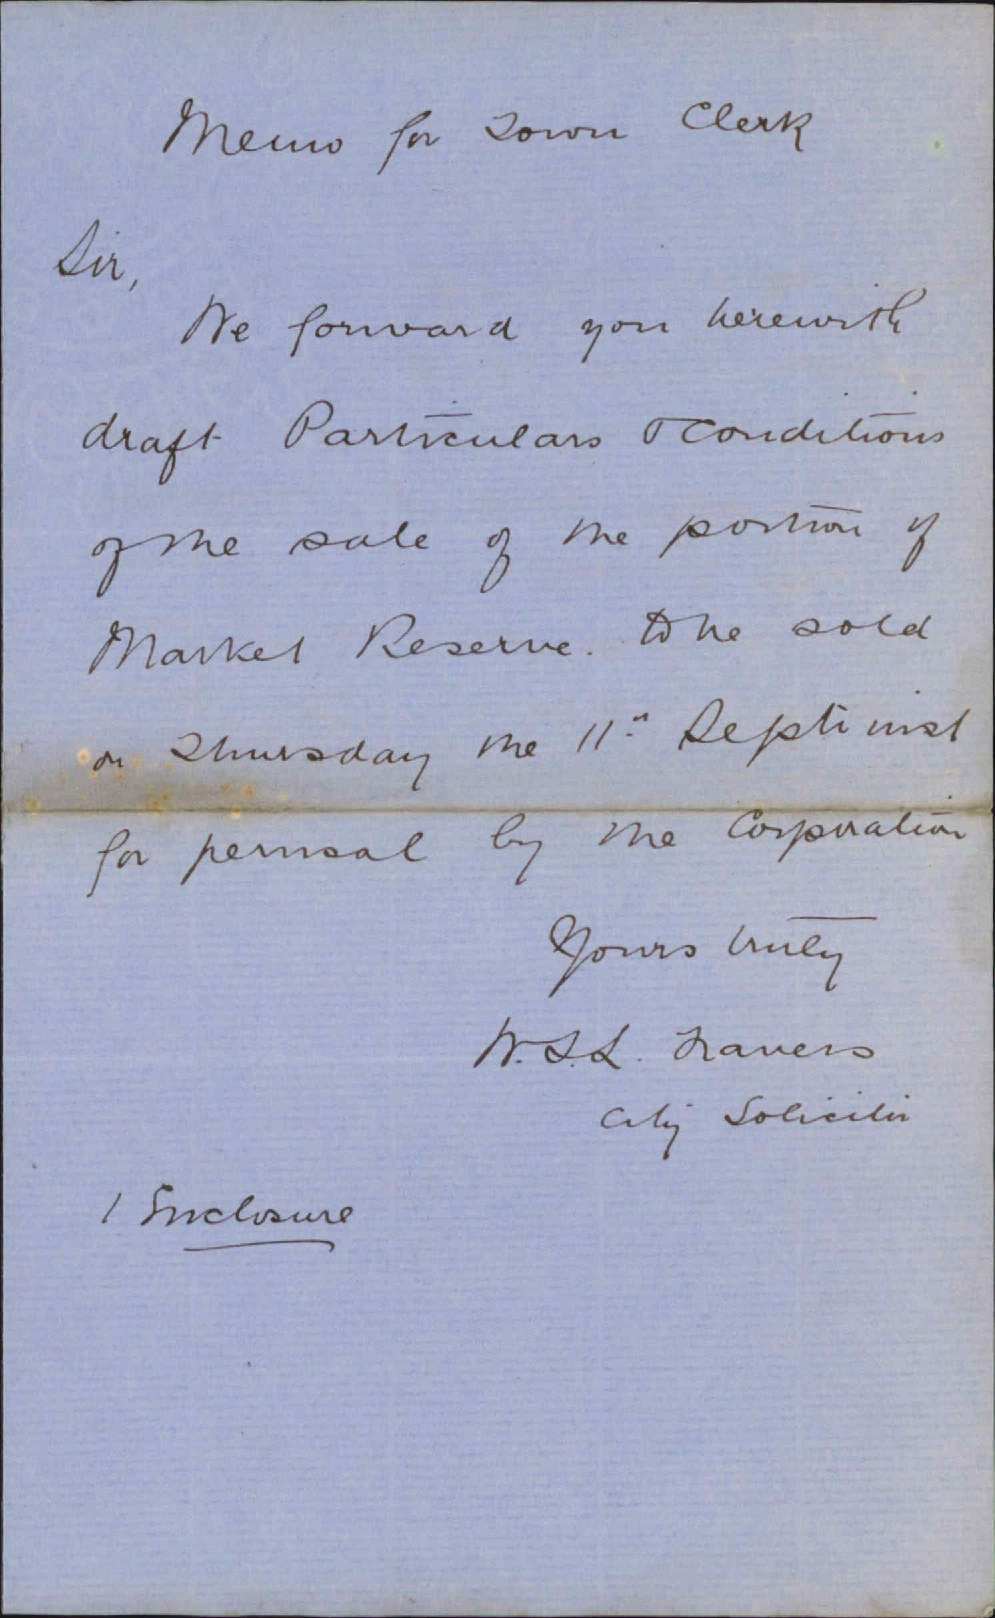 Memo for Town Clerk
Sir,
We forward you herewith
draft Particulars & Conditions
of the sale of the portion of
Market Reserve. to be sold
on Thursday the 11th Septr inst
for perusal by the Corporation
Yours truly
W.T.L. Travers
City Solicitor
1 Enclosure